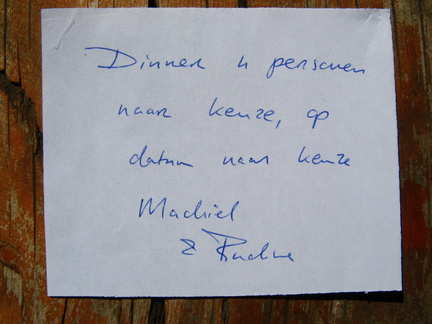 Dinner n personen
naar keuze, op
datum naar keuze
Machiel
&